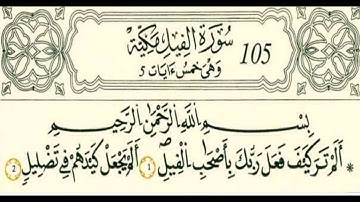 سُورَةُ الفِيلِ مَكِّيَّة 105
وَهْيَ خَمْسُ ءَايَاتٍ 5
بِسْمِ اللَّهِ الرَّحْمَٰنِ الرَّحِيمِ
* أَلَمْ تَرَ كَيْفَ فَعَلَ رَبُّكَ بِأَصْحَابِ الْفِيلِ 1 أَلَمْ يَجْعَلْ كَيْدَهُمْ فِي تَضْلِيلٍ 2